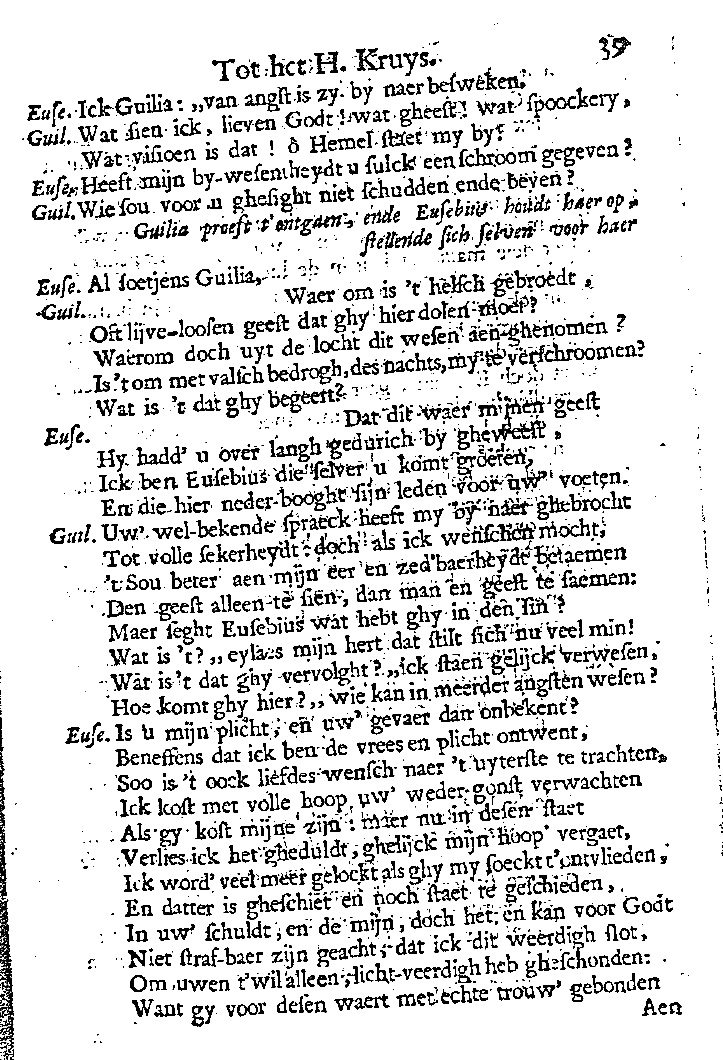 Tot het H. Kruys. 39
Euse. Ick Guilia: ,,van angst is zy by naer besweken,
Guil. Wat sien ick, lieven Godt! wat gheest! wat spoockery,
Wat visioen is dat! ô Hemel staet my by!
Euse. Heeft mijn by-wesentheydt u sulck een schroom gegeven?
Guil. Wie sou voor u ghesight niet schudden ende beven?
Guilia proeft t'ontgaen, ende Eusebius houdt haer op,
stellende sich selven voor haer
Euse. Al soetjens Guilia,
Guil. Waer om is 't helsch gebroedt,
Oft lijve-loosen geest dat ghy hier dolen moet?
Waerom doch uyt de locht dit wesen aen-ghenomen?
Is 't om met valsch bedrogh, des nachts, my te verschroomen?
Wat is 't dat ghy begeert?
Euse. Dat dit waer mijnen geest
Hy hadd' u over langh gedurich by gheweest,
Ick ben Eusebius die selver u komt groeten,
En die hier neder-booght sijn leden voor uw' voeten.
Guil. Uw' wel-bekende spraeck heeft my by naer ghebrocht
Tot volle sekerheydt: doch als ick wenschen mocht,
't Sou beter aen mijn eer en zed'baerheyde betaemen
Den geest alleen te sien, dan man en geest te saemen:
Maer seght Eusebius wat hebt ghy in den sin?
Wat is 't? ,,eylaes mijn hert dat stilt sich nu veel min!
Wat is 't dat ghy vervolght? ,,ick staen gelijck verwesen,
Hoe komt ghy hier? ,,wie kan in meerder angsten wesen?
Euse. Is u mijn plicht, en uw' gevaer dan onbekent?
Beneffens dat ick ben de vrees en plicht ontwent,
Soo is 't oock liefdes wensch naer 't uyterste te trachten,
Ick kost met volle hoop uw' weder-gonst verwachten
Als gy kost mijne zijn: maer nu in desen staet
Verlies ick het gheduldt, ghelijck mijn hoop vergaet,
Ick word' veel meer gelockt als ghy my soeckt t'ontvlieden,
En datter is gheschiet en noch staet te geschieden,
In uw' schuldt, en de mijn, doch het en kan voor Godt
Niet straf-baer zijn geacht, dat ick dit weerdigh slot,
Om uwen t'wil alleen, licht-veerdigh heb gheschonden:
Want gy voor desen waert met echte trouw' gebonden
Aen